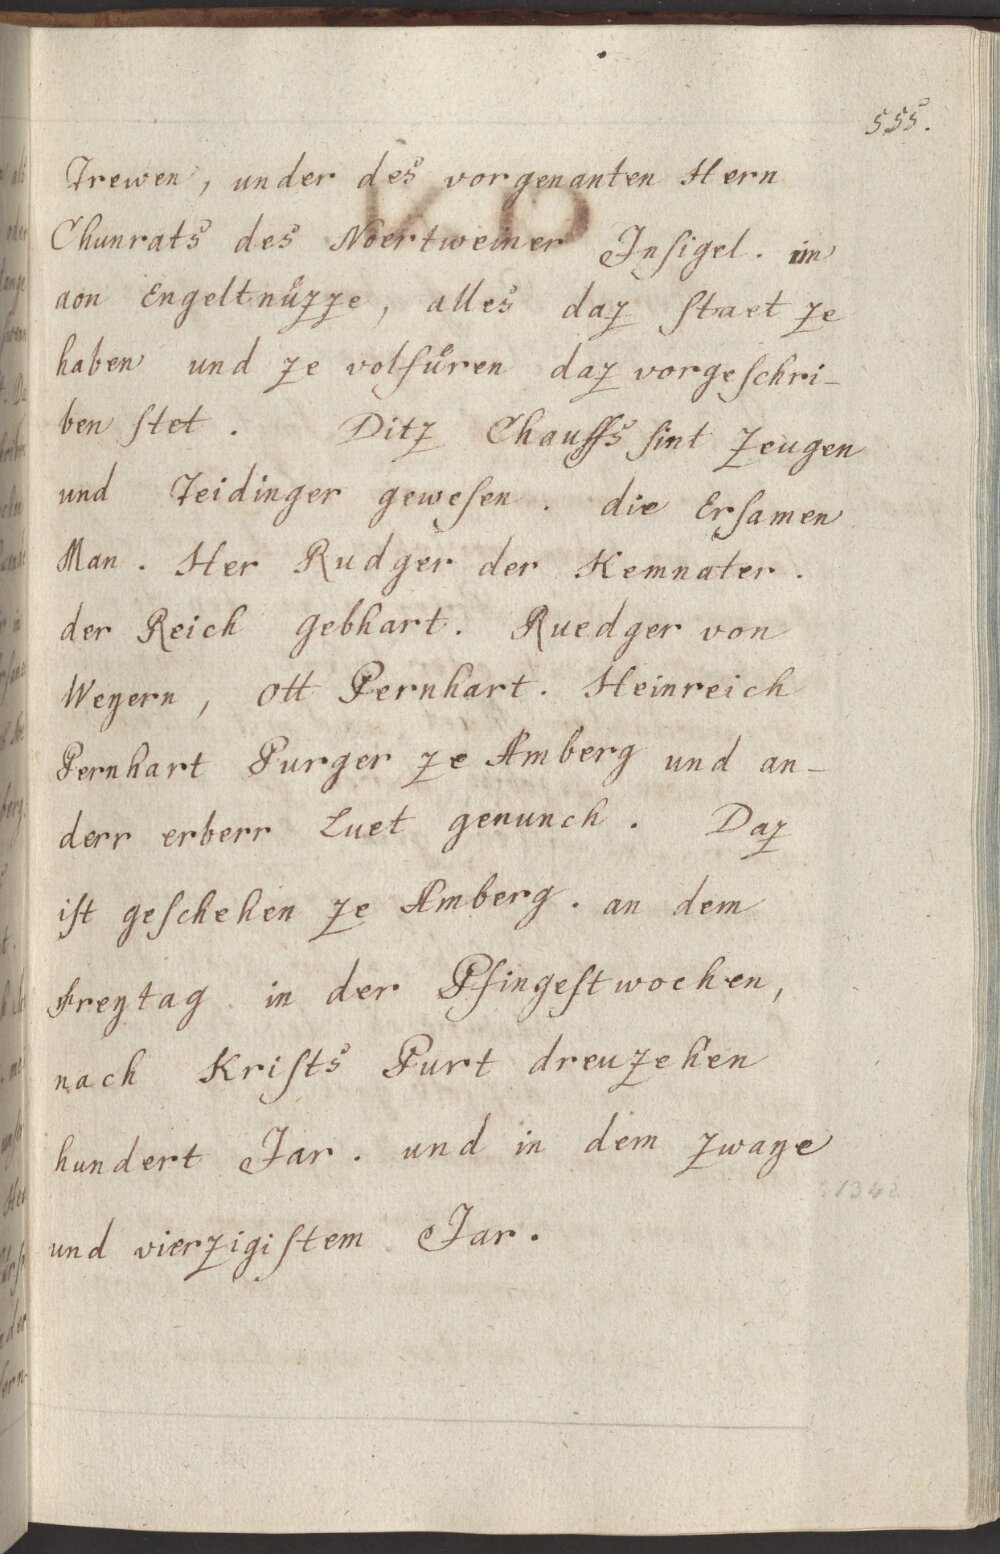 555.
Trewen, under des vorgenanten Hern
Chunrats des Noertweiner Insigel. im
aon Engeltnüzze, alles daz staet ze
haben und ze volfüren daz vorgeschri-
ben stet. Ditz Chauffs sint zeugen
und Teidinger gewesen. die Ersamen
Man. Her Rudger der Kemnater.
der Reich Gebhart. Ruedger von
Weyern, Ott Pernhart. Heinreich
Pernhart Purger ze Amberg und an-
derr erberr Luet genunch. Daz
ist geschehen ze Amberg. an dem
Freytag in der Pfingestwochen,
nach Krists Purt dreuzehen
hundert Jar. und in dem zwaye
1342
und vierzigistem Jar.